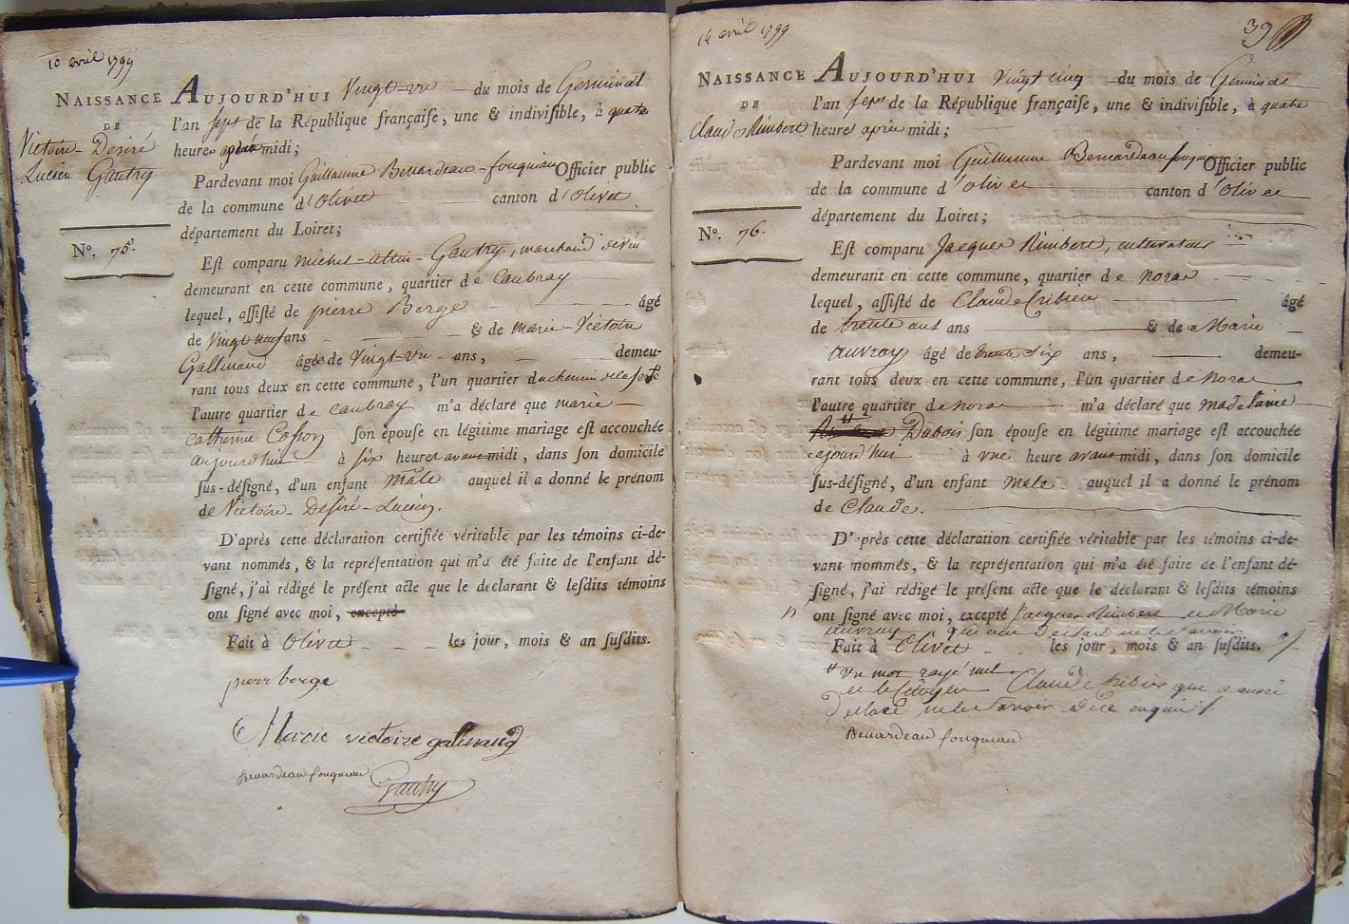 10 avril 1799
NAISSANCE
DE
Victoire-Desiré
Lucien Gautry
No. 75.
AUJOURD'HUI Vingt-un du mois de Germinal
l'an sept de la République française, une & indivisible, à quatre
heures après midi;
Pardevant moi Guillaume Benardeau-fouqueau Officier public
de la commune d'Olivet canton d'Olivet.
département du Loiret;
Est comparu michel- Gautry, marchand de vin
demeurant en cette commune, quartier de Caubray
lequel, assisté de pierre Berge âgé
de Vingt neuf ans & de marie-Victoire
Gallinand âgée de Vingt-un ans, demeu-
rant tous deux en cette commune, l'un quartier du chemin de la ferté
l'autre quartier de Caubray m'a déclaré que marie
catherine Cosson son épouse en légitime mariage est accouchée
aujourd'hui à six heures avant midi, dans son domicile
sus-désigné, d'un enfant Mâle auquel il a donné le prénom
de Victoire-Désiré-Lucien.
D'après cette déclaration certifiée véritable par les témoins ci-de-
vant nommés, & la représentation qui m'a été faite de l'enfant dé-
signé, j'ai rédigé le présent acte que le déclarant & lesdits témoins
ont signé avec moi, excepté
Fait à Olivet les jour, mois & an susdits.
pierr berge
Marie victoire galinand
Benardeau fouqueau
Gautry
14 avril 1799
39
NAISSANCE
DE
Claude Rimbert
No. 76.
AUJOURD'HUI Vingt cinq du mois de Germinal
l'an sept de la République française, une & indivisible, à quatre
heures après midi;
Pardevant moi Guillaume Benardeau fouqueau Officier public
de la commune d'Olivet canton d'Olivet
département du Loiret;
Est comparu Jacques Rimbert, cultivateur
demeurant en cette commune, quartier de noras
lequel, assisté de Claude Cribier âgé
de trente ans & de Marie
auvray âgé de trente six ans, demeu-
rant tous deux en cette commune, l'un quartier de noras
l'autre quartier de noras m'a déclaré que madelaine
Dubois son épouse en légitime mariage est accouchée
cejourd'hui à une heure avant midi, dans son domicile
sus-désigné, d'un enfant Male auquel il a donné le prénom
de Claude.
D'après cette déclaration certifiée véritable par les témoins ci-de-
vant nommés, & la représentation qui m'a été faite de l'enfant dé-
signé, j'ai rédigé le présent acte que le déclarant & lesdits témoins
ont signé avec moi, excepté Jacques Rimbert et Marie
auvray qui ont déclaré ne le savoir
Fait à Olivet les jour, mois & an susdits.
un mot rayé nul
et le Citoyen Claude Cribier que a aussi
déclaré ne le savoir de ce enquis
Benardeau fouqueau